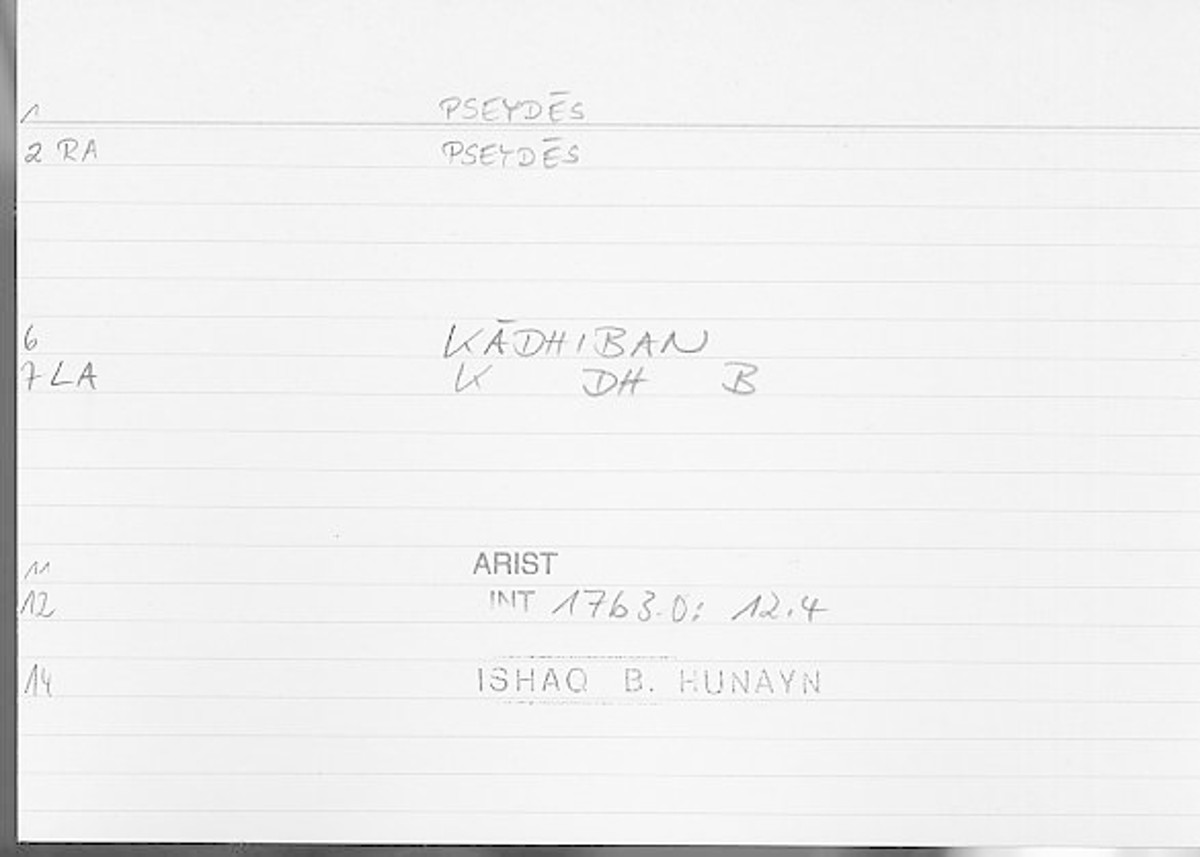 1 PSEYDĒS
2 RA PSEYDĒS
6 KĀDHIBAN
7 LA K DH B
11 ARIST
12 INT 1763.0: 12.4
14 ISHAQ B. HUNAYN